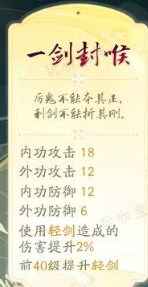 一剑封喉
厉鬼不能夺其正，
利剑不能折其刚。
内功攻击 18
外功攻击 12
内功防御 12
外功防御 6
使用轻剑造成的
伤害提升2%
前40级提升轻剑